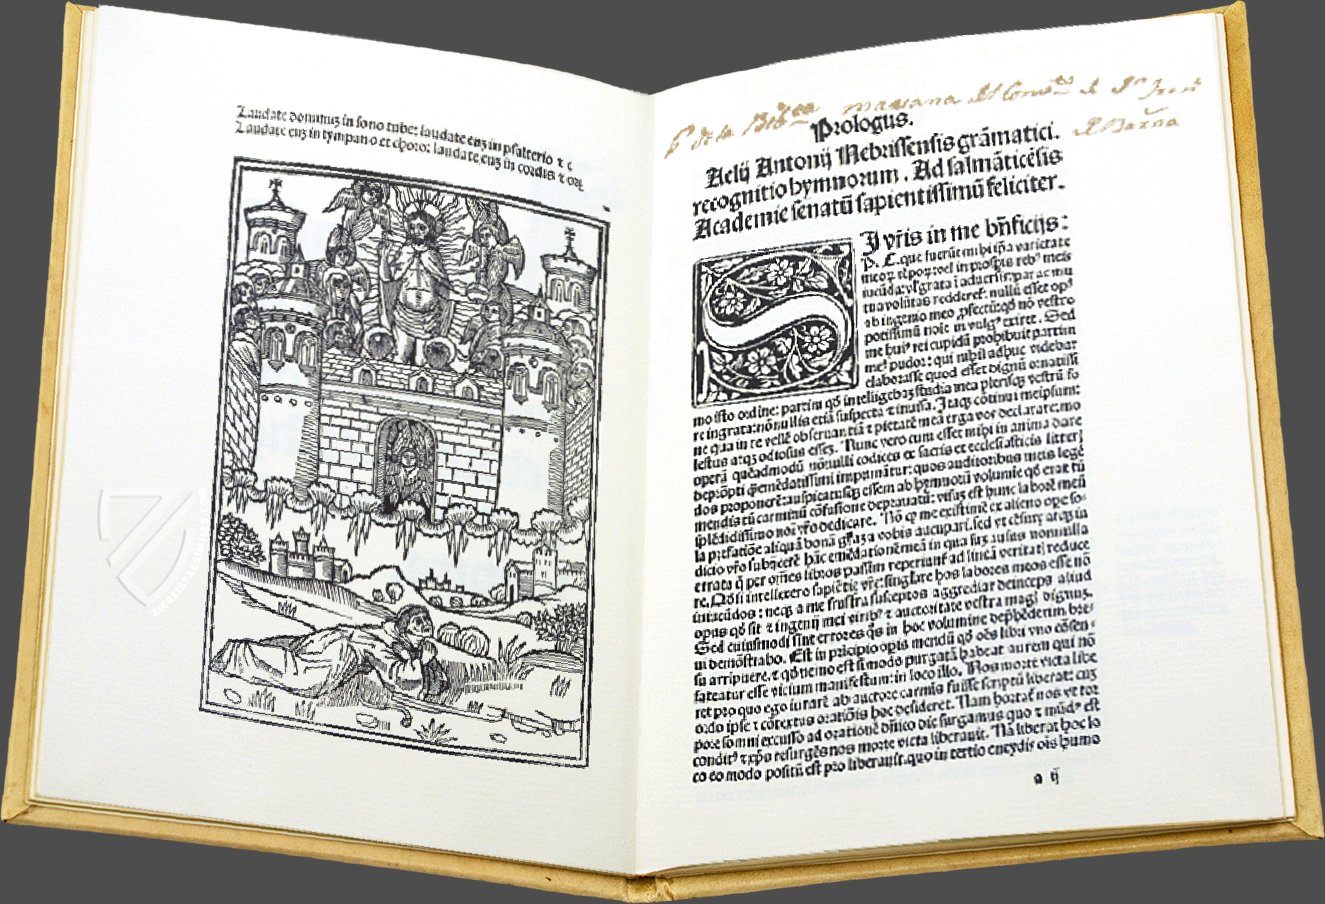 Laudate dominuz in sono tube: laudate euz in psalterio ⁊ c
Laudate euz in tympano et choro: laudate euz in cordis ⁊ org
P de la Bibca mariana del Convto de Sn Fran
de Barna
Prologus.
Aelij Antonij Nebrissensis grãmatici.
recognitio hymnorum. Ad salmãticẽsis
Academie senatũ sapientissimũ feliciter.
in me bñficijs:
P. C. que fuerũt mihi ip̃a varietate
meoꝝ tẽpoꝝ: vel in prosp̃is rebꝰ meis
iucũda: vl̃ grata ĩ aduersis: par ac mu
tua volũtas redderet: nullũ esset opꝰ
ab ingenio meo ꝓfectũ: qð nõ vestro
potissimũ noĩe in vulgꝰ exiret. Sed
me huiꝰ rei cupidũ prohibuit partim
meꝰ pudor: qui nihil adhuc videbar
elaborasse quod esset dignũ ornatissi
mo isto ordine: partim qð intelligebaz studia mea plerisqz vestrũ fo
re ingrata: nõnullis etiã suspecta ⁊ inuisa. Itaqz cõtinui meipsum:
ne qua in re vellẽ obseruantiã ⁊ pietatẽ meã erga vos declarare: mo
lestus atqz odiosus essez. Nunc vero cum esset mihi in animo dare
operã quẽadmodũ nõnulli codices ex sacris et ecclesiasticis litteris
deprõpti q̃emẽdatissimi imprimãtur: quos auditoribus meis legẽ
dos proponerẽ: auspicatusqz essem ab hymnorũ volumine qð erat tũ
mendis tũ carminũ cõfusione deprauatũ: visus est hunc laborẽ meũ
splẽdidissimo noĩ vr̃o dedicare. Nõ qz me existimẽ ex alieno ope so-
la p̃fatiõe aliquã bonã gr̃aꝫ a vobis aucupari. sed vt cẽsurę atqz iu
dicio vr̃o subijcerẽ hãc emẽdationẽ meã in qua suz ausus nonnulla
errata q̃ per om̃es libros passim reperiunt̃ ad lineã veritatĩ reduce
re. Qð si intellexero sapiẽtię vr̃ę singlare hos labores meos esse nõ
iniucũdos: neqz a me frustra susceptos aggrediar deinceps aliud
opus qð sit ⁊ ingenij mei viribꝰ ⁊ auctoritate vestra magꝭ dignuz.
Sed cuiusmodi sint errores q̃s in hoc volumine dep̃hẽderim bre-
ui demõstrabo. Est in prĩcipio opis mendũ qð oẽs libri vno cõsen-
su arripuere. ⁊ qð nemo est si modo purgatã habeat aurem qui nõ
fateatur esse vicium manifestum: in loco illo. Nos morte victa libe
ret pro quo ego iurarẽ ab auctore carmĩs fuisse scriptũ liberat: cuz
ordo ipse ⁊ cõtextus oratiõis hoc desideret. Nam hortat̃ nos vt tor
pore somni excusso ad orationẽ dñico die surgamus quo ⁊ mũdꝰ est
conditꝰ ⁊ xp̃s resurgẽs nos morte victa liberauit. Nã liberat hoc lo
co eo modo positũ est pro liberauit. quo in tertio eneydis oĩs humo
a ij